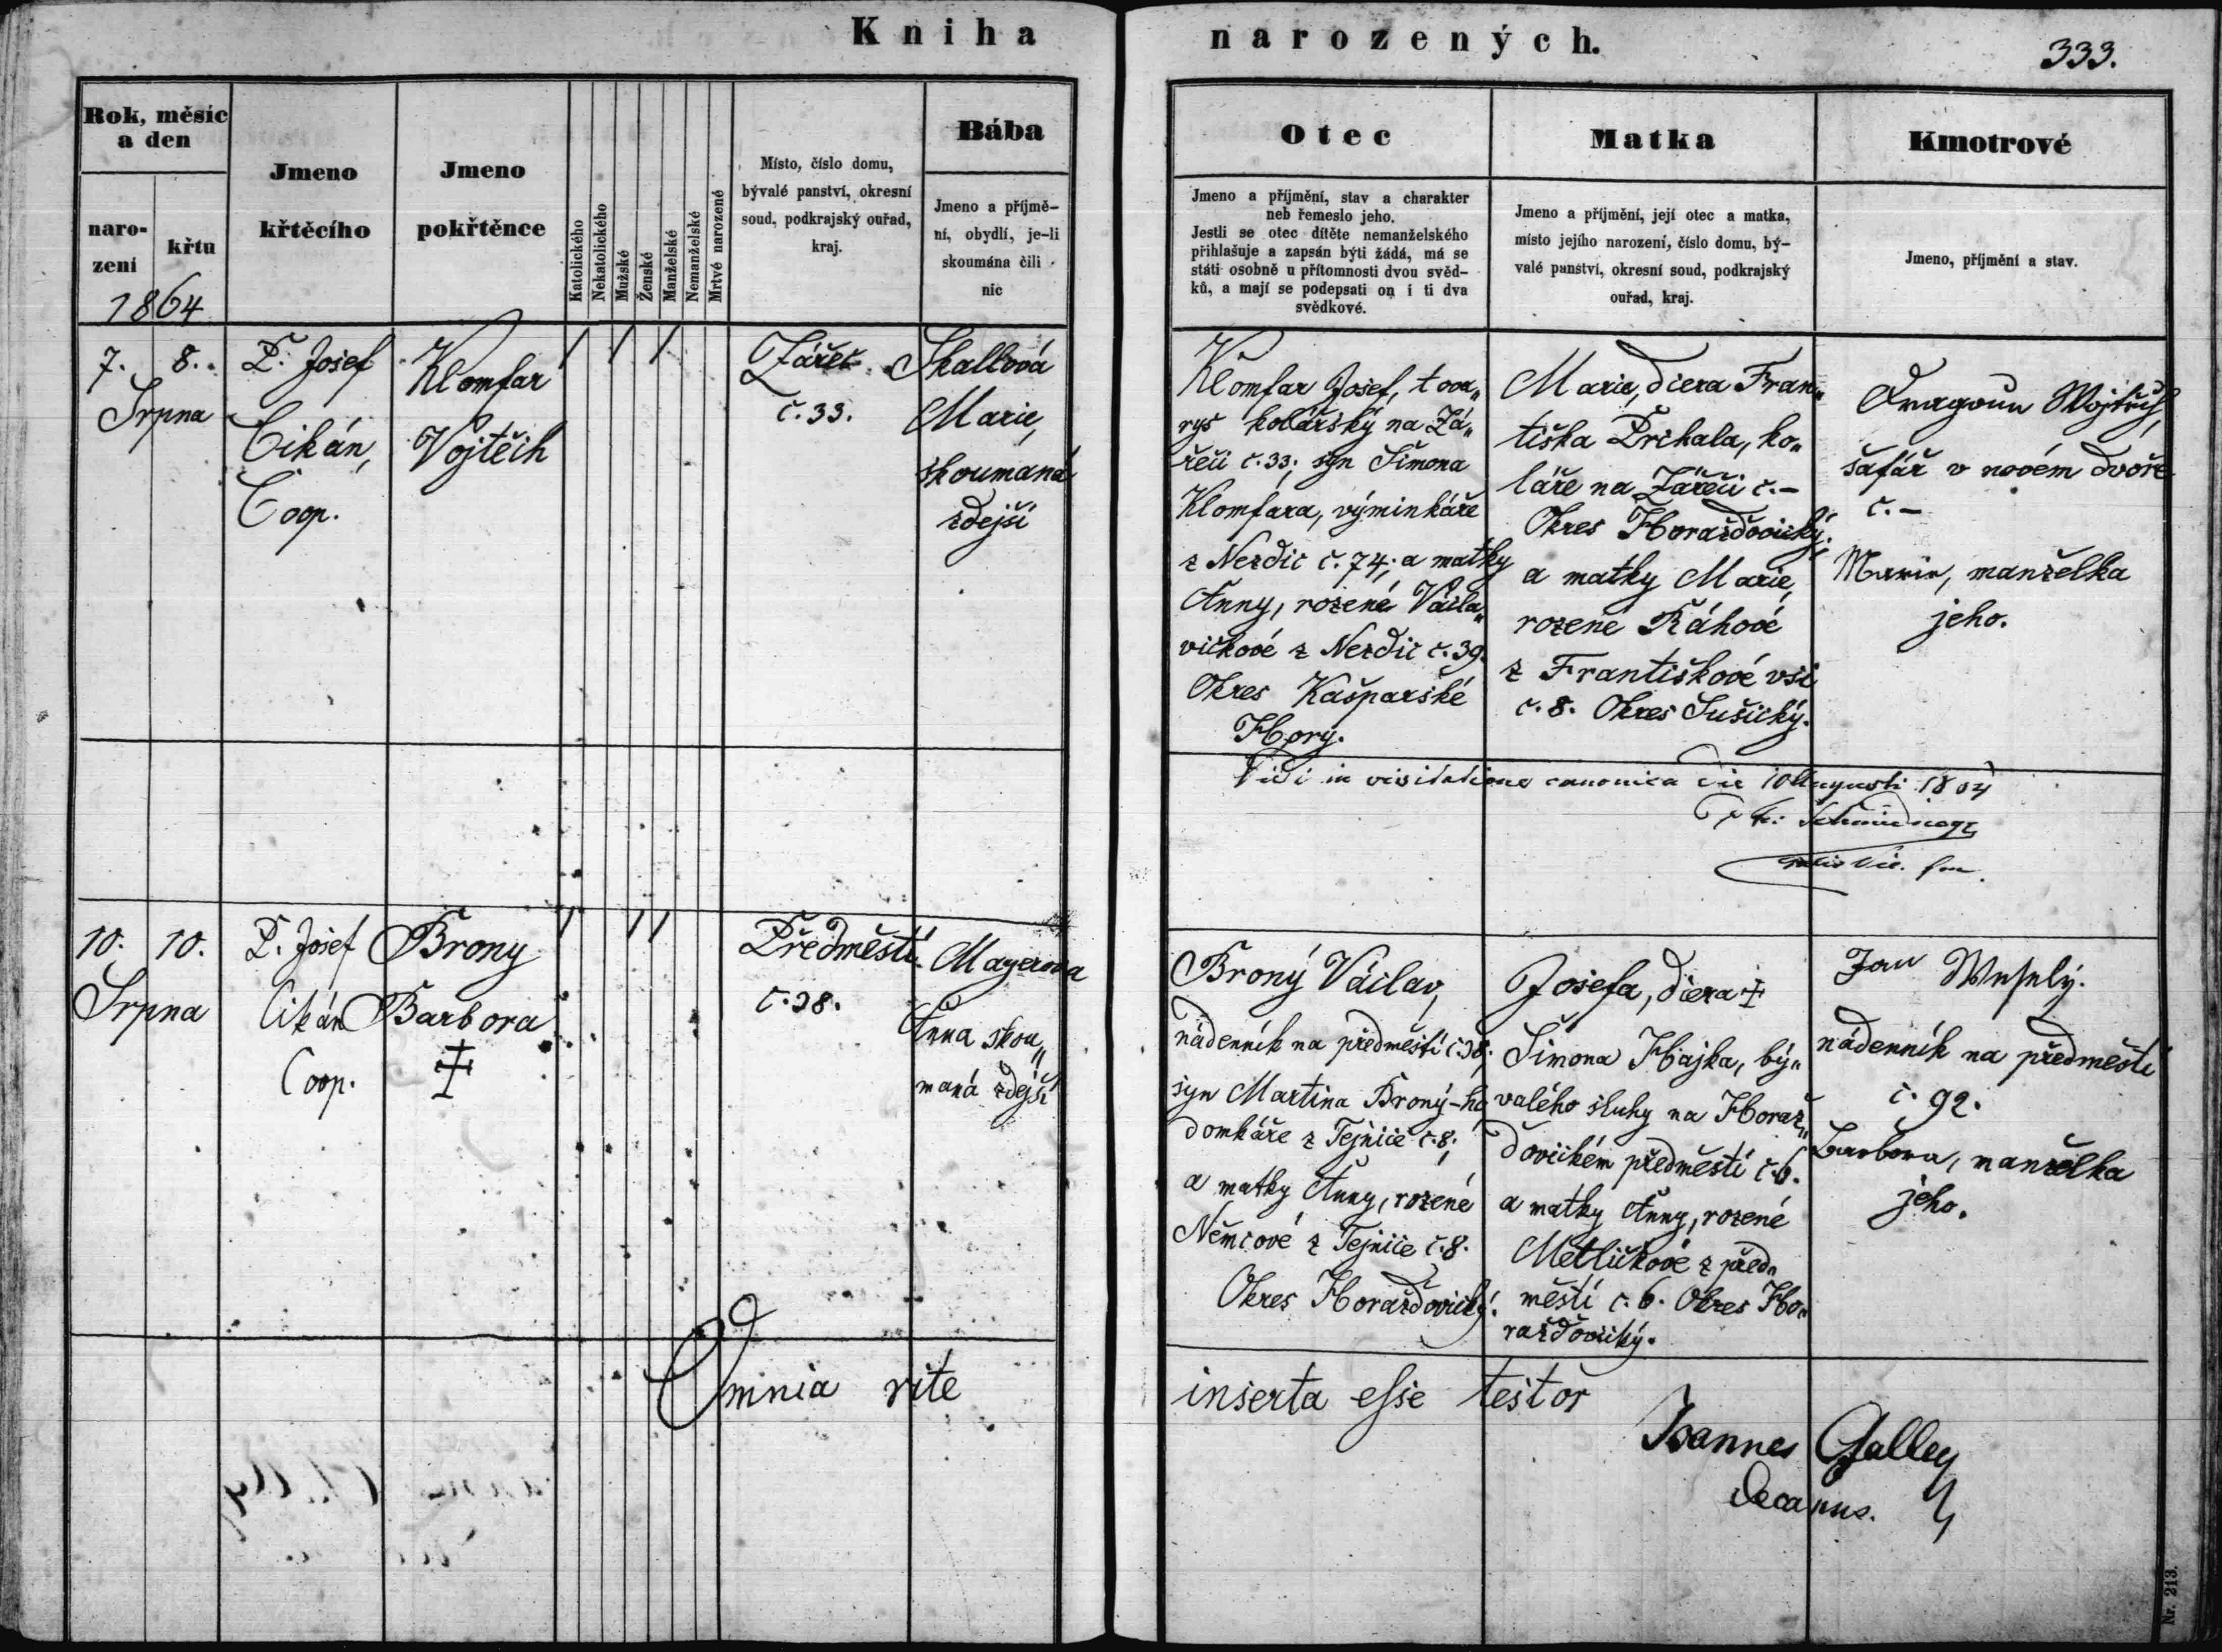 Kniha narozených.
333.
Rok, měsíc
a den
naro-
zení
křtu
1864
Jmeno
křtěcího
Jmeno
pokřtěnce
Katolického
Nekatolického
Mužské
Ženské
Manželské
Nemanželské
Mrtvé narozené
Místo, číslo domu,
bývalé panství, okresní
soud, podkrajský ouřad,
kraj.
Bába
Jmeno a příjmě-
ní, obydlí, je-li
skoumána čili
nic
Otec
Jmeno a příjmění, stav a charakter
neb řemeslo jeho.
Jestli se otec dítěte nemanželského
přihlašuje a zapsán býti žádá, má se
státi osobně u přítomnosti dvou svěd-
ků, a mají se podepsati on i ti dva
svědkové.
Matka
Jmeno a příjmění, její otec a matka,
místo jejího narození, číslo domu, bý-
valé panství, okresní soud, podkrajský
ouřad, kraj.
Kmotrové
Jmeno, příjmění a stav.
7. 8.
Srpna
P. Josef
Cikán,
Coop.
Klomfar
Vojtěch
Zářeč
č. 33.
Skallová
Marie,
skoumaná
zdejší
Klomfar Josef, tova„
ryš kolářský na Zá„
řečí č. 33; syn Šimona
Klomfara, výminkáře
z Nezdic č. 74; a matky
Anny, rozené Václa„
vičkové z Nezdic č. 39.
Okres Kašparské
Hory.
Marie, dcera Fran„
tiška Prchala, ko„
láře na Zářečí č. –
Okres Horažďovický.
a matky Marie,
rozené Ráhové
z Františkové vsi
č. 8. Okres Sušický.
Dragoun Wojtěch,
šafář v novém dvoře
č. –
Marie, manželka
jeho.
Vidi in visitatione canonica die 10 Augusti 1864
10. 10.
Srpna
P. Josef
Cikán
Coop.
Brony
Barbora
Předměstí
č. 38.
Mayerova
Anna skou„
maná zdejší
Broný Václav,
nádenník na předměstí č. 38;
syn Martina Broný-ho
domkáře z Tejnice č. 8;
a matky Anny, rozené
Němcové z Tejnice č. 8.
Okres Horažďovický.
Josefa, dcera ‡
Šimona Hajka, bý„
valého sluhy na Horaž„
ďovickém předměstí č. 6.
a matky Anny, rozené
Metličkové z před„
městí č. 6. Okres Ho„
ražďovický.
Jan Weselý.
nádenník na předměstí
č. 92.
Barbora, manželka
jeho.
Omnia rite inserta esse testor
Joannes Galley
Decanus.
Nr. 213.